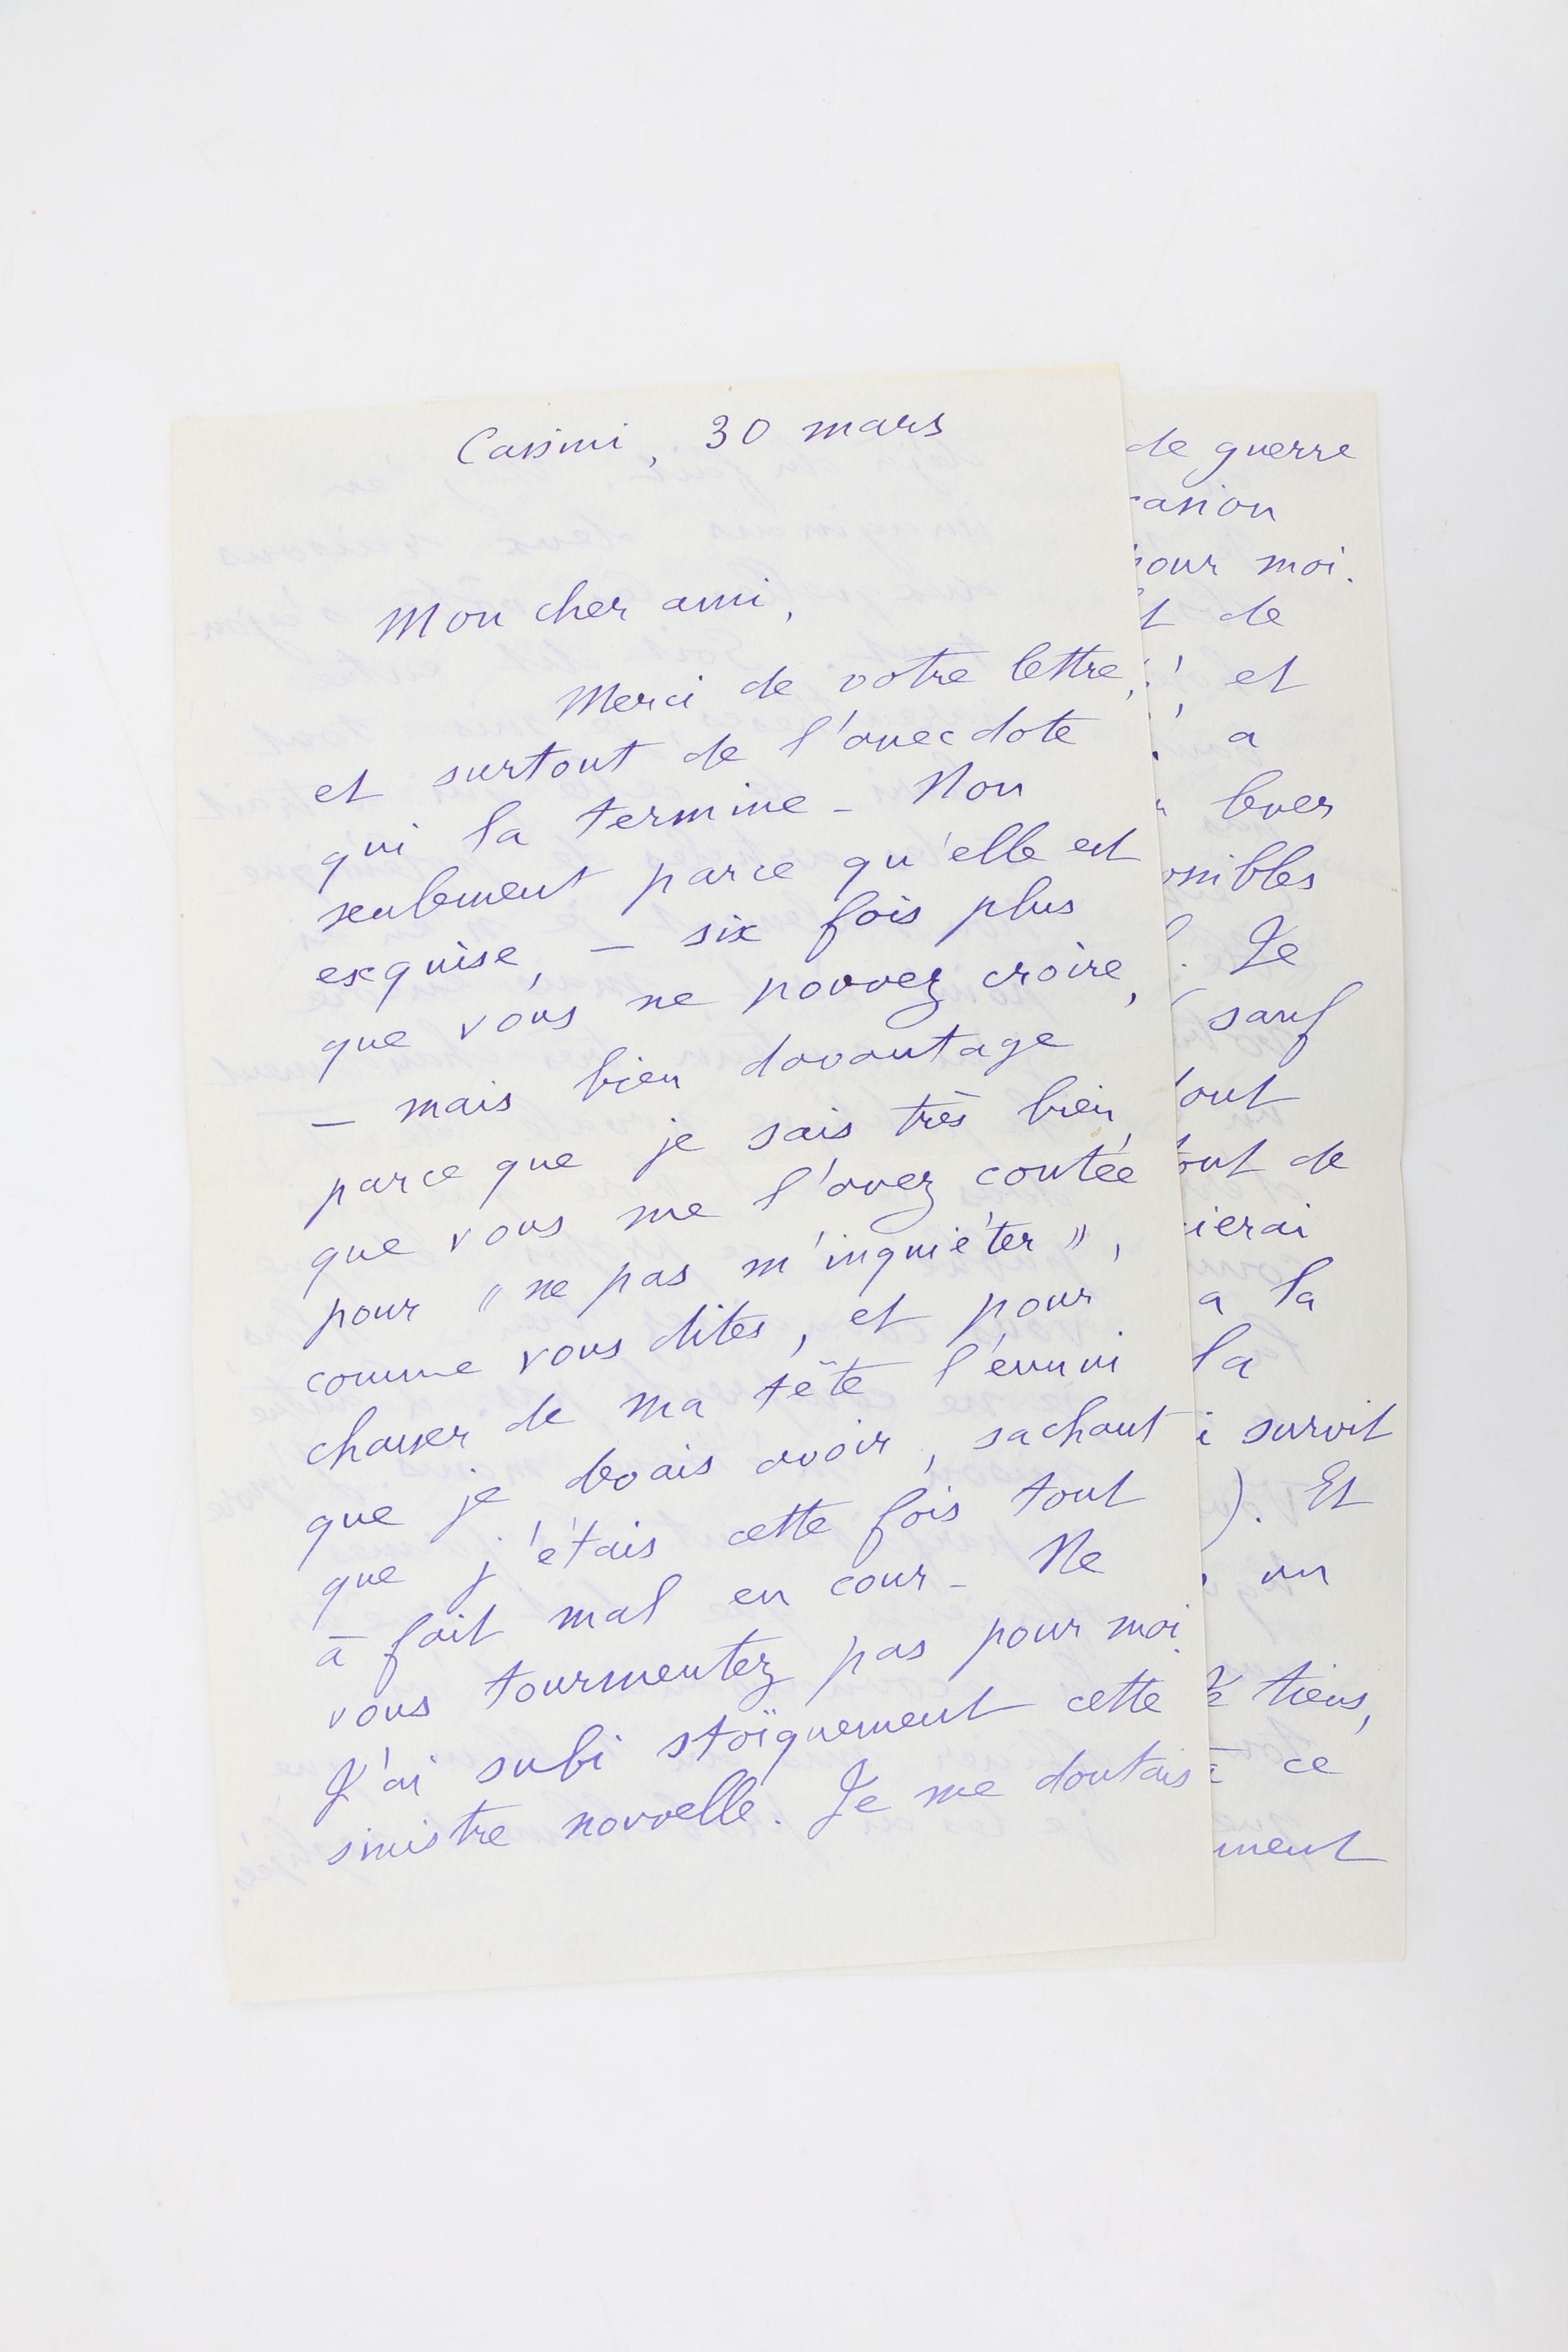 Cassini, 30 mars
Mon cher ami,
Merci de votre lettre,
et surtout de l'anecdote
qui la termine - Non
seulement parce qu'elle est
exquise, — six fois plus
que vous ne pouvez croire,
— mais bien davantage
parce que je sais très bien,
que vous me l'avez contée
pour « ne pas m'inquiéter »,
comme vous dites, et pour
chasser de ma tête l'ennui
que je devais avoir, sachant
que j'étais cette fois tout
à fait mal en cour - Ne
vous tourmentez pas pour moi.
J'ai subi stoïquement cette
sinistre nouvelle. Je me doutais
de guerre
casion
pour moi.
t de
et
a
lever
onibles
. Je
( sauf
tout
tout de
cierai
a la
la
i survit
). Et
un
tiens,
ce
ment